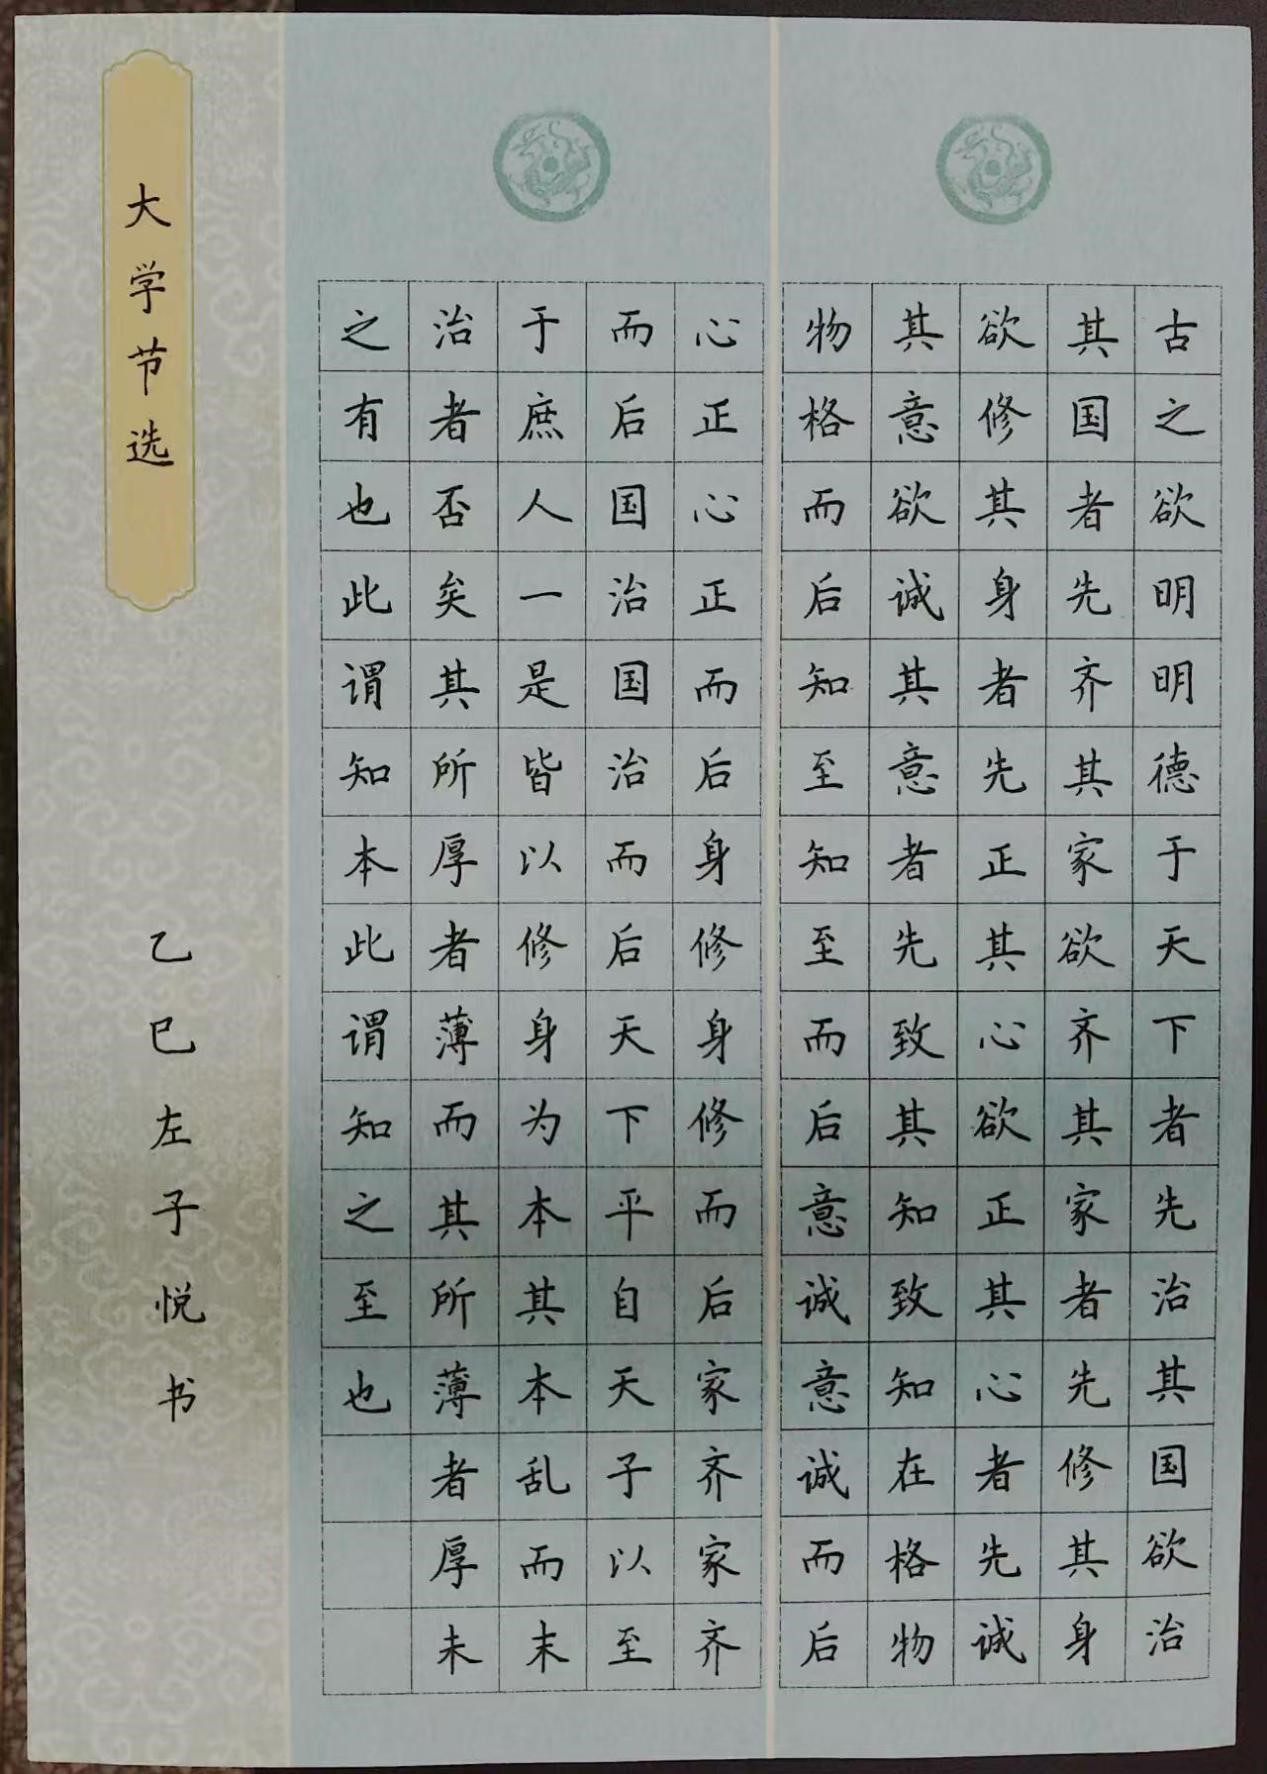 古之欲明明德于天下者先治其国欲治
其国者先齐其家欲齐其家者先修其身
欲修其身者先正其心欲正其心者先诚
其意欲诚其意者先致其知致知在格物
物格而后知至知至而后意诚意诚而后
心正心正而后身修身修而后家齐家齐
而后国治国治而后天下平自天子以至
于庶人一是皆以修身为本其本乱而末
治者否矣其所厚者薄而其所薄者厚未
之有也此谓知本此谓知之至也
大学节选
乙巳左子悦书